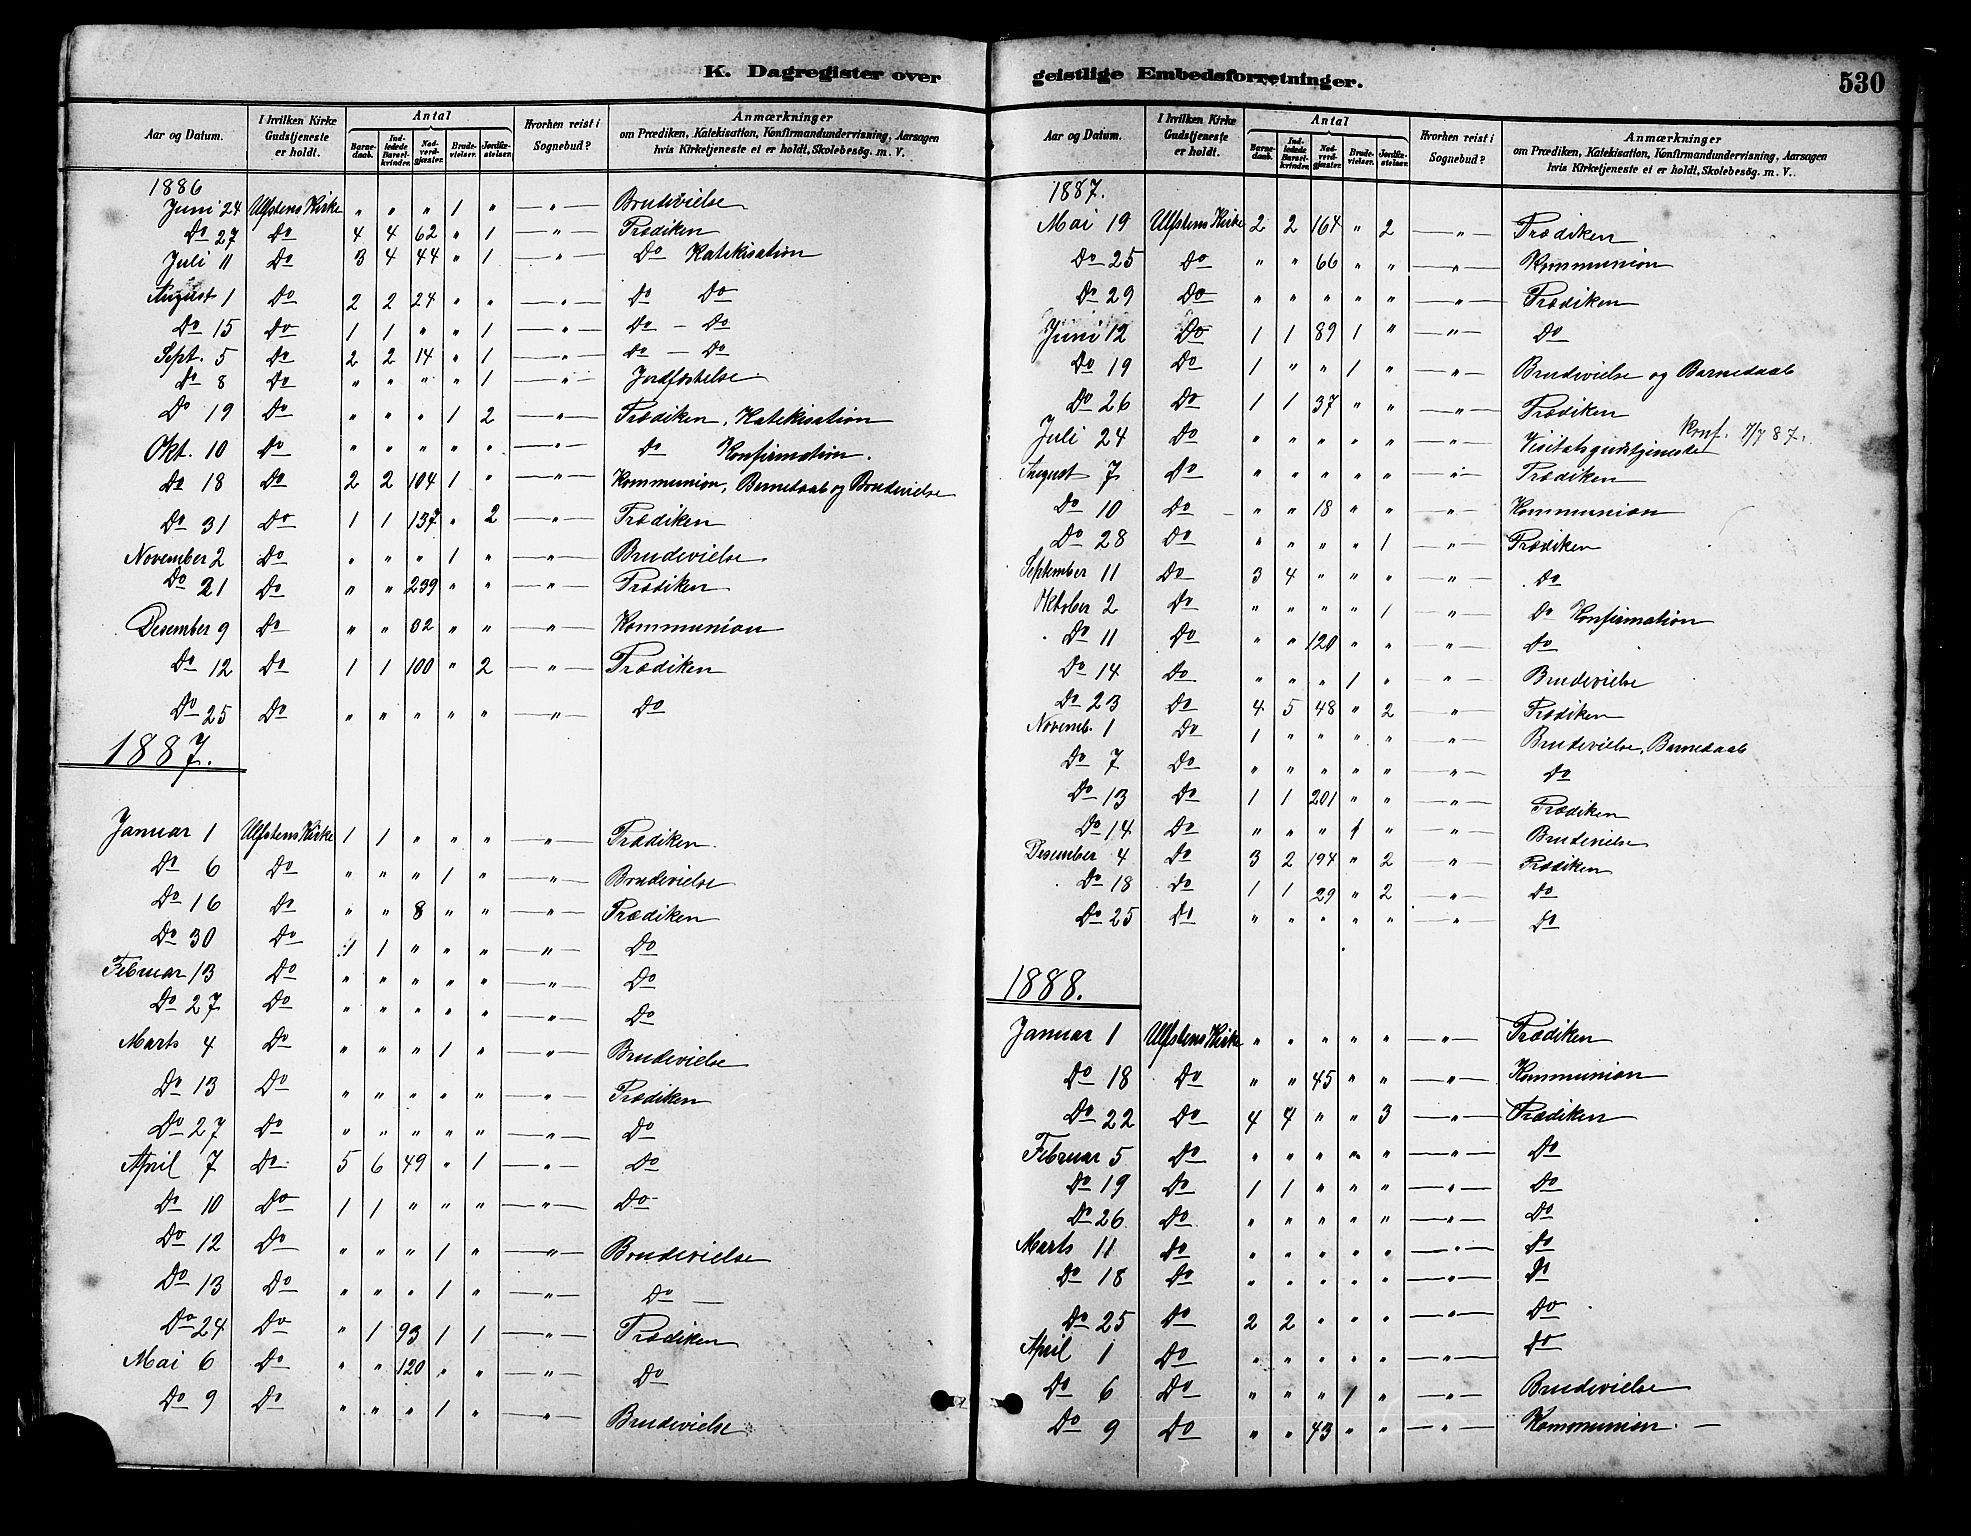 K. Dagregister over
Aar og Datum. | I hvilken Kirke Gudstjeneste er holdt. | Antal | Barnedaab. | Indledede Barselkvinder. | Nadverdgjæster. | Brudevielser. | Jordfæstelser. | Hvorhen reist i Sognebud? | Anmærkninger om Prædiken, Katekisation, Konfirmandundervisning, Aarsagen hvis Kirketjeneste ei er holdt, Skolebesøg. m. V.
1886
Juni 24 Ulfstens Kirke " " " 1 " —"— Brudevielse
Do 27 Do 4 4 62 " 1 —"— Prædiken
Juli 11 Do 3 4 44 " 1 —"— Do Katekisation
August 1 Do 2 2 24 " " —"— Do Do
Do 15 Do 1 1 " " 1 —"— Do — Do
Sept. 5 Do 2 2 14 " 1 —"— Do — Do
Do 8 Do " " " " 1 —"— Jordfæstelse.
Do 19 Do " " " 1 2 —"— Prædiken, Katekisation
Okt. 10 Do " " " " " —"— Do Konfirmation.
Do 18 Do 2 2 104 1 " —"— Kommunion, Barnedaab og Brudevielse
Do 31 Do 1 1 137 " 2 —"— Prædiken
November 2 Do " " " 1 " —"— Brudevielse
Do 21 Do " " 239 " " —"— Prædiken
Desember 9 Do " " 32 " " —"— Kommunion
Do 12 Do 1 1 100 " 2 —"— Prædiken
Do 25 Do " " " " " —"— Do
1887.
Januar 1 Ulfstens Kirke 1 1 " " " —"— Prædiken.
Do 6 Do " " " 1 " —"— Brudevielse
Do 16 Do " " 8 " " —"— Prædiken
Do 30 Do 1 1 " " " —"— Do
Februar 13 Do " " " " " —"— Do
Do 27 Do " " " " " —"— Do
Marts 4 Do " " " 1 " —"— Brudevielse
Do 13 Do " " " " " —"— Prædiken
Do 27 Do " " " " " —"— Do
April 7 Do 5 6 49 " 1 —"— Do
Do 10 Do 1 1 " " " —"— Do
Do 12 Do " " " 1 " —"— Brudevielse
Do 13 Do " " " 1 " —"— Do —
Do 24 Do " 1 93 1 1 —"— Prædiken
Mai 6 Do " " 120 " " —"— Do
Do 9 Do " " " 1 " —"— Brudevielse
geistlige Embedsforretninger. 530
Aar og Datum. | I hvilken Kirke Gudstjeneste er holdt. | Antal | Barnedaab. | Indledede Barselkvinder. | Nadverdgjæster. | Brudevielser. | Jordfæstelser. | Hvorhen reist i Sognebud? | Anmærkninger om Prædiken, Katekisation, Konfirmandundervisning, Aarsagen hvis Kirketjeneste ei er holdt, Skolebesøg. m. V.
1887.
Mai 19 Ulfstens Kirke 2 2 164 " 2 —"— Prædiken
Do 25 Do " " 66 " " —"— Kommunion
Do 29 Do " " " " " —"— Prædiken
Juni 12 Do 1 1 89 1 " —"— Do
Do 19 Do 1 " " 1 " —"— Brudevielse og Barnedaab
Do 26 Do 1 1 37 " " —"— Prædiken
Juli 24 Do " " " " " —"— Visitatsgudstjeneste Konf. 7/7 87.
August 7 Do " " " " " —"— Prædiken
Do 10 Do " " 18 " " —"— Kommunion
Do 28 Do " " " " 1 —"— Prædiken
September 11 Do 3 4 " " " —"— Do
Oktober 2 Do " " " " 1 " Do Konfirmation
Do 11 Do " " 120 " " —"— Do
Do 14 Do " " " 1 " —"— Brudevielse
Do 23 Do 4 5 48 " 2 —"— Prædiken
Novemb. 1 Do 1 " " " " —"— Brudevielse, Barnedaab
Do 7 Do " " " " " —"— Do
Do 13 Do 1 1 201 " " —"— Prædiken
Do 14 Do " " " 1 " —"— Brudevielse
Desember 4 Do 3 2 194 " 2 —"— Prædiken
Do 18 do 1 1 29 " 2 —"— Do
Do 25 Do " " " " " —"— Do
1888.
Januar 1 Ulfstens Kirke " " " " " —"— Prædiken
Do 18 Do " " 45 " " —"— Kommunion
Do 22 Do 4 4 " " 3 —"— Prædiken
Februar 5 Do " " " " " —"— Do
Do 19 Do 1 1 " " " —"— Do
Do 26 Do " " " " " —"— Do
Marts 11 Do " " " " " —"— Do
Do 18 Do " " " " " —"— Do
Do 25 Do 2 2 " " " —"— Do
April 1 Do " " " " " —"— Do
Do 6 Do " " " 1 " —"— Brudevielse
Do 9 Do " " 43 " " —"— Kommunion. —